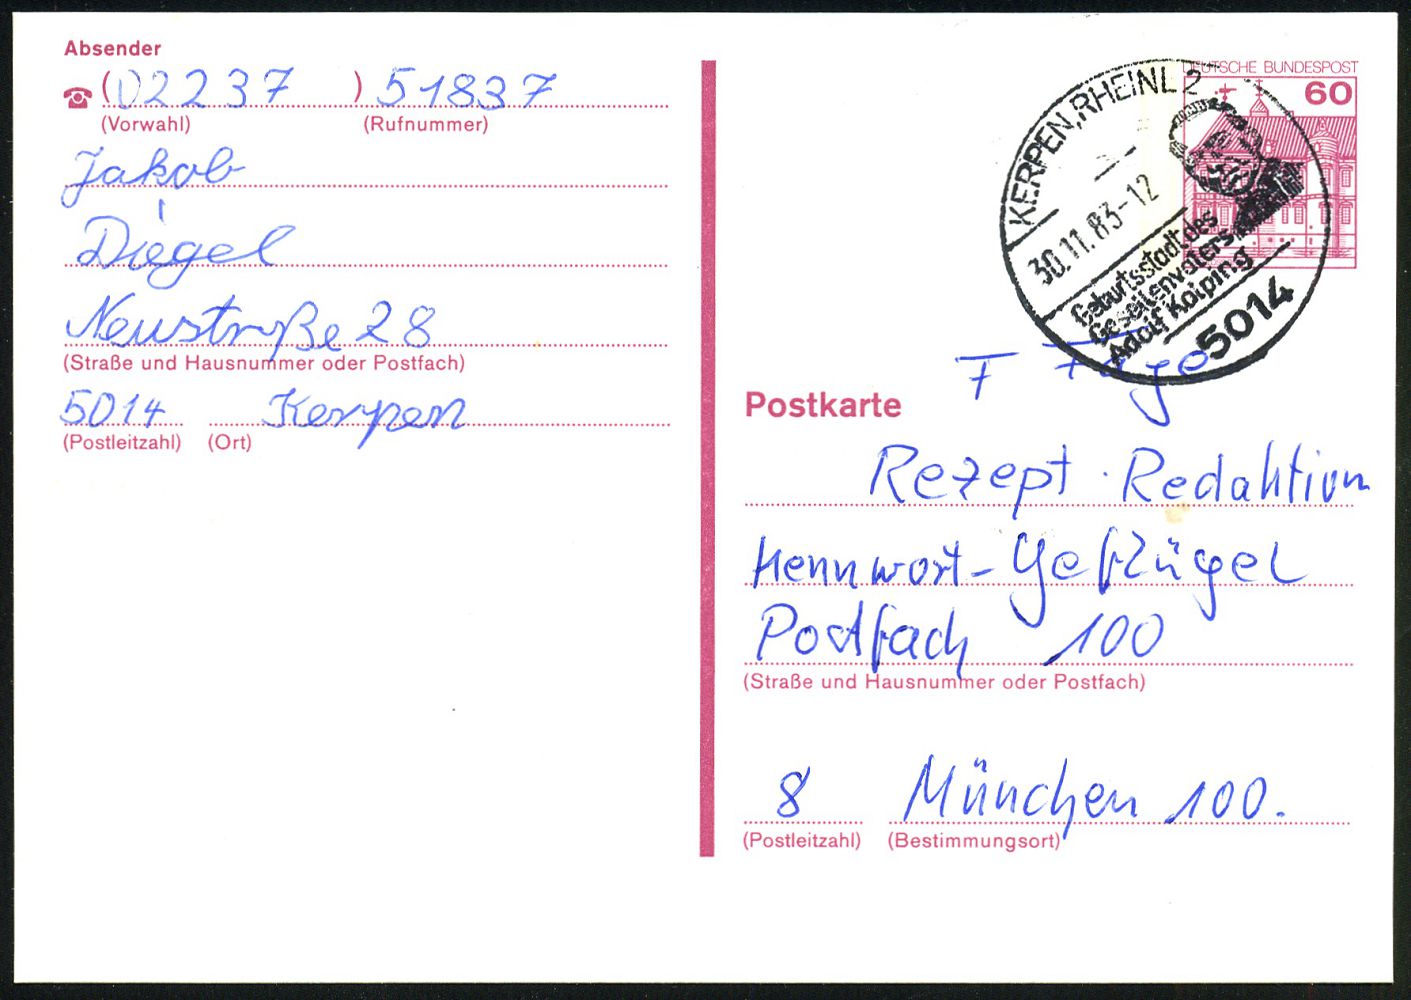 Absender
(02237 ) 51837
(Vorwahl) (Rufnummer)
Jakob
Diegel
Neustraße 28
(Straße und Hausnummer oder Postfach)
5014 Kerpen
(Postleitzahl) (Ort)
DEUTSCHE BUNDESPOST
60
KERPEN, RHEINL 2
30.11.83-12
Geburtsstadt des
Gesellenvaters
Adolf Kolping
5014
Postkarte
Rezept-Redaktion
Kennwort-Geflügel
Postfach 100
(Straße und Hausnummer oder Postfach)
8 München 100.
(Postleitzahl) (Bestimmungsort)